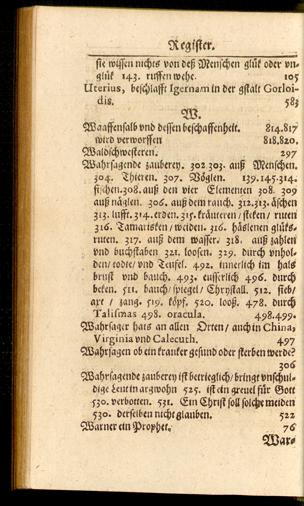 Register.
sie wissen nichts von deß Menschen glük oder vn-
glük 143. ruffen wehe. 105
Uterius, beschlafft Igernam in der gstalt Gorloi-
dis. 583
W.
Waaffensalb vnd dessen beschaffenheit. 814.817
wird verworffen 818.820.
Waldschwesteren. 297
Wahrsagende zauberey. 302.303. auß Menschen.
304. Thieren. 307. Vöglen. 139.145.314.
fischen.308. auß den vier Elementen 308. 309
auß näglen. 306. auß dem rauch. 312.313. äschen
313. lufft. 314. erden. 315. kräuteren / steken / ruten
316. Tamarisken / weiden. 316. häslenen glüks-
ruten. 317. auß dem wasser. 318. auß zahlen
vnd buchstaben 321. loosen. 329. durch vnhol-
den / todte / vnd Teufel. 492. innerlich im hals
brust vnd bauch. 493. eusserlich 496. durch
beten. 511. bauch / spiegel / Chrystall. 512. sieb /
art / zang. 519. köpf. 520. looß. 478. durch
Talismas 498. oracula. 498.499.
Wahrsager hats an allen Orten / auch in China,
Virginia vnd Calecuth. 497
Wahrsagen ob ein kranker gesund oder sterben werde?
306
Wahrsagende zauberey ist betrieglich / bringt vnschul-
dige leut in argwohn 525. ist ein greuel für Gott
530. verbotten. 531. Ein Christ soll solche meiden
530. derselben nicht glauben. 522
Warner ein Prophet. 76
War-